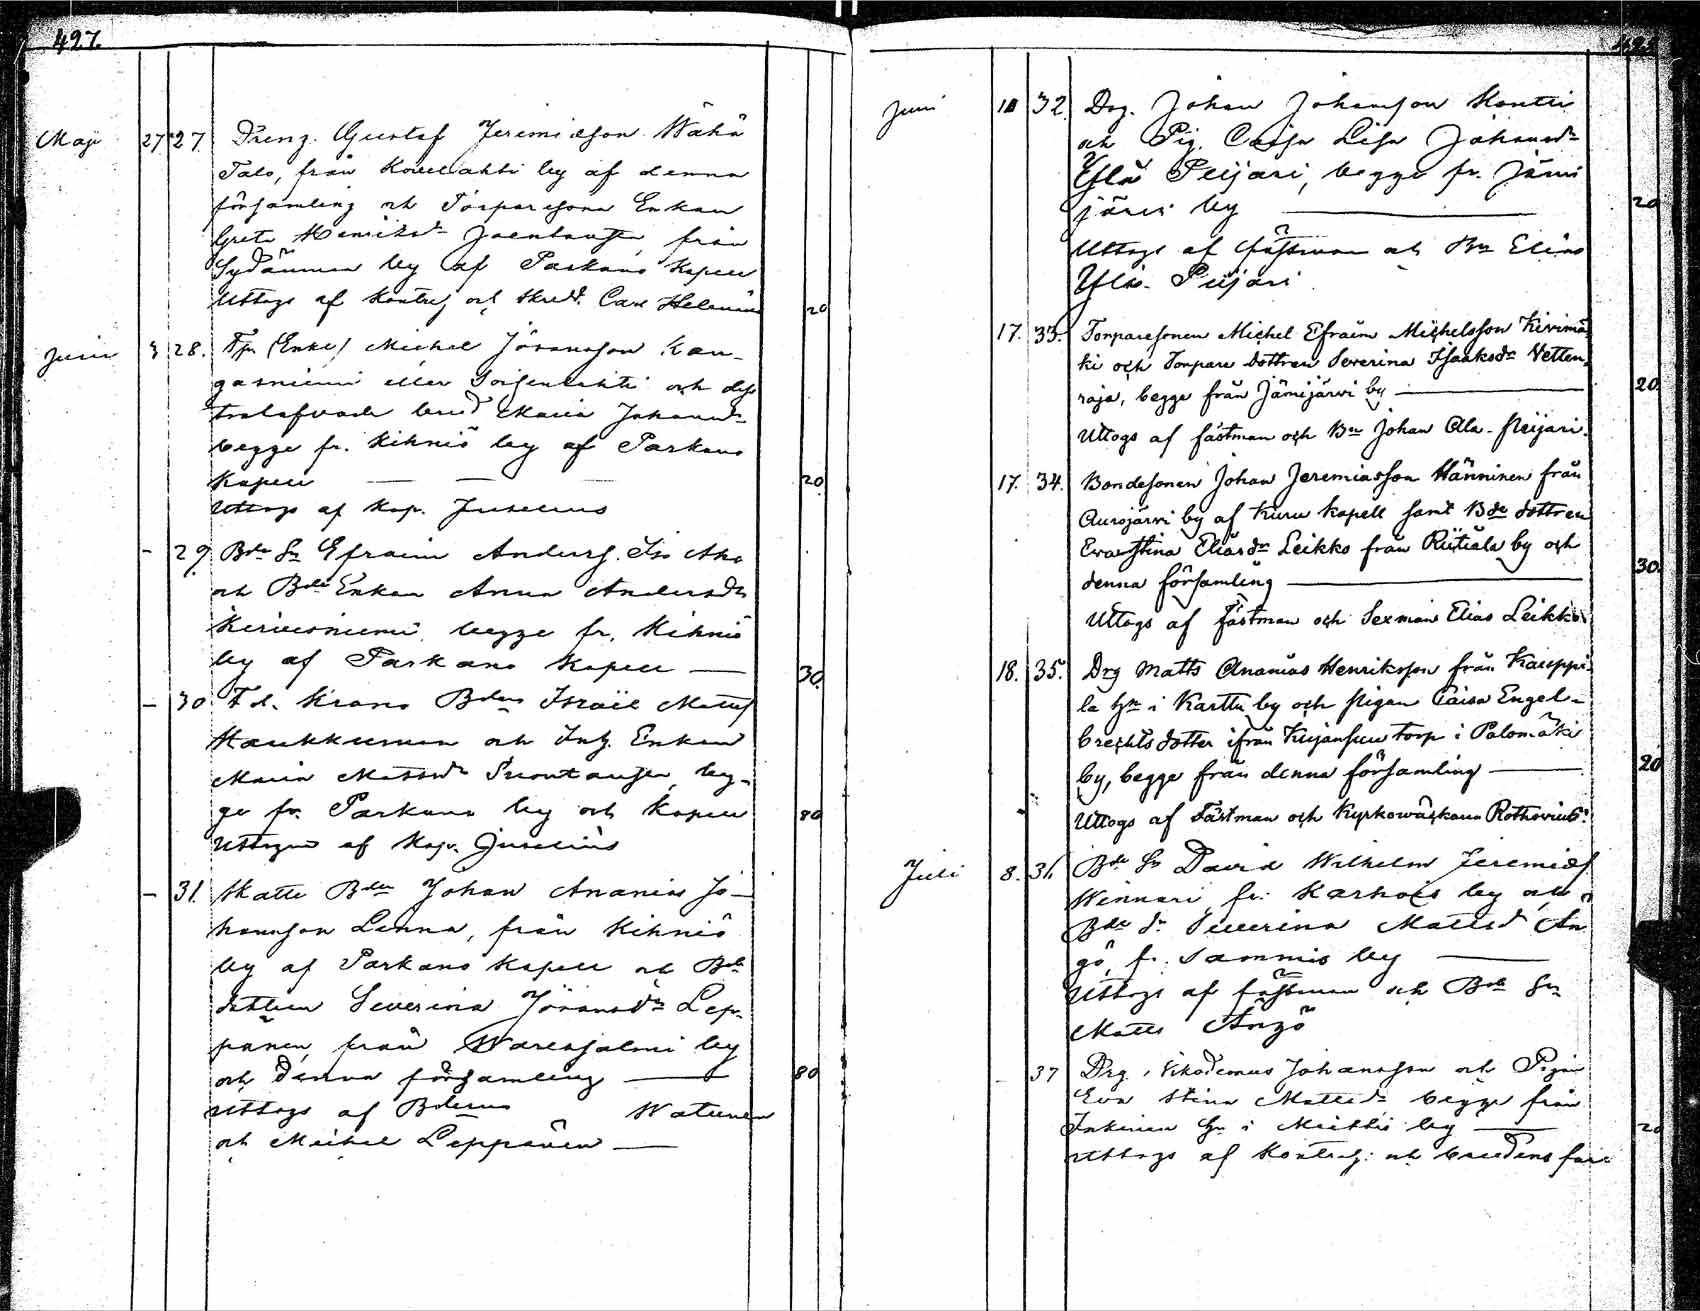 497.
Maji 27 27. Dreng. Gustaf Jeremiæson Wähä
Talo, från Kovelahti by af denna
församling och Torparesona Enkan
Greta Henriksdr från
Sydänmaa by af Parkano Kapell
Uttogs af Kontrah. och Skredd. Carl Helenius 20
Junii 3 28. Tpr (Enkl) Michel Jöransson Kan-
gasniemi eller Soisenlahti och dess
trolofvade brud Maria Johansdr
begge fr. Kihniö by af Parkano
Kapell — — — 20
Uttogs af Kap. Juselius
- 29. Bde Sn Efraim Anders. Iso Aho
och Bde Enkan Anna Andersdr
Kiviniemi begge fr. Kihniö
by af Parkano Kapell — 30.
- 30 F.d. Krono Bden Israël Matts
Haukkunen och Inh. Enkan
Maria Mattsdr beg-
ge fr. Parkano by och Kapell 80
Uttogs af Kap. Juselius
- 31. Skatte Bde Johan Ananias Jo-
hansson Lenna, från Kihniö
by af Parkano Kapell och Bde
dottren Severina Jöransdr Lep-
pänen från by
och denna församling — 80
Uttogs af Watunen
och Michel Leppänen —
Juni 10 32. Drg. Johan Johansson Kontti
och Pig. Caisa Lisa Johansdr
Ylä Peijari, begge fr. Jämi
järvi by — 20
Uttogs af fästman och Bn Elias
Ylä- Peijari
17. 33. Torparesonen Michel Efraim Michelsson Kivimä-
ki och Torpare dottren Severina Isaaksdr Vetten-
raja, begge från Jämijärvi by — 20
Uttogs af fästman och Bn Johan Ala-Peijari.
17. 34. Bondesonen Johan Jeremiasson Hänninen från
Aurojärvi by af Kuru Kapell samt Bde dottren
Eva Stina Eliasdr Leikko från Riitiala by och
denna församling — 30.
Uttogs af fästman och Sexman Elias Leikko
18. 35. Drg Matts Ananias Henriksson från Kauppi-
la hn i Karttu by och pigan Caisa Engel-
brechts dotter ifrån Kujansuu torp i Palomäki
by, begge från denna församling — 20
Uttogs af Fästman och Kyrkowäcktaren Rothovius.
Juli 8. 36 Bde Sn David Wilhelm Jeremias
Winnari fr. Karhois by och
Bde dr Severina Mattsd Än
gö fr. Sammis by —
Uttogs af fästman och Bde Sn
Matts Ängö
- 37 Drg. Nikodemus Johansson och Pigan
Eva Stina Mattsdr begge från
Inkinen hn i Miettis by — 20
Uttogs af Kontrah: och brudens far